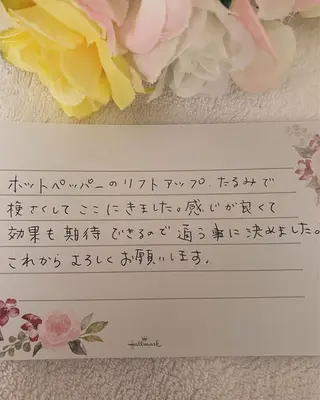 ホットペッパーのリフトアップ、たるみで
検さくして ここにきました。感じが良くて
効果も期待できるので通う事に決めました。
これからよろしくお願いします。
Hallmark